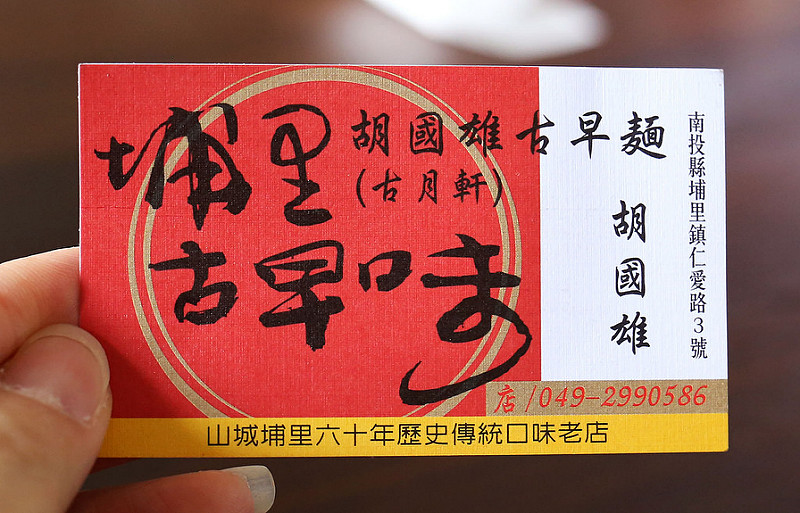 埔里
古早味
胡國雄古早麵
(古月軒)
胡國雄
南投縣埔里鎮仁愛路3號
店/049-2990586
山城埔里六十年歷史傳統口味老店